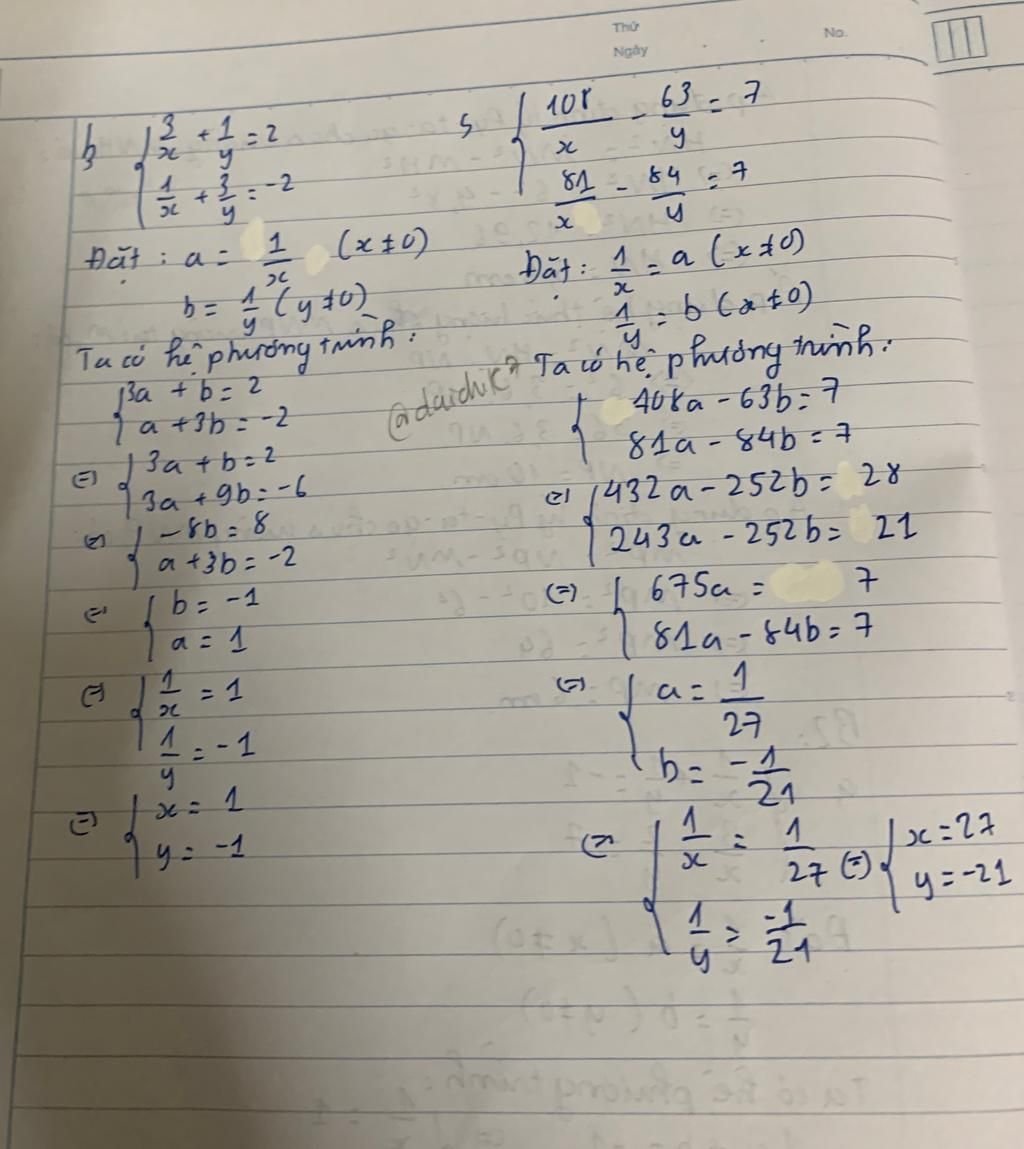 Thứ
Ngày
No.
b, { 3/x + 1/y = 2
1/x + 3/y = -2
Đặt : a = 1/x (x ≠ 0)
b = 1/y (y ≠ 0)
Ta có hệ phương trình :
{ 3a + b = 2
a + 3b = -2
(=) { 3a + b = 2
3a + 9b = -6
(=) { -8b = 8
a + 3b = -2
(=) { b = -1
a = 1
(=) { 1/x = 1
1/y = -1
(=) { x = 1
y = -1
@daichik7
5 { 108/x - 63/y = 7
81/x - 84/y = 7
Đặt : 1/x = a (x ≠ 0)
1/y = b (x ≠ 0)
Ta có hệ phương trình :
{ 108a - 63b = 7
81a - 84b = 7
(=) { 432a - 252b = 28
243a - 252b = 21
(=) { 675a = 7
81a - 84b = 7
(=) { a = 1/27
b = -1/21
(=) { 1/x = 1/27 (=) { x = 27
1/y = -1/21 y = -21